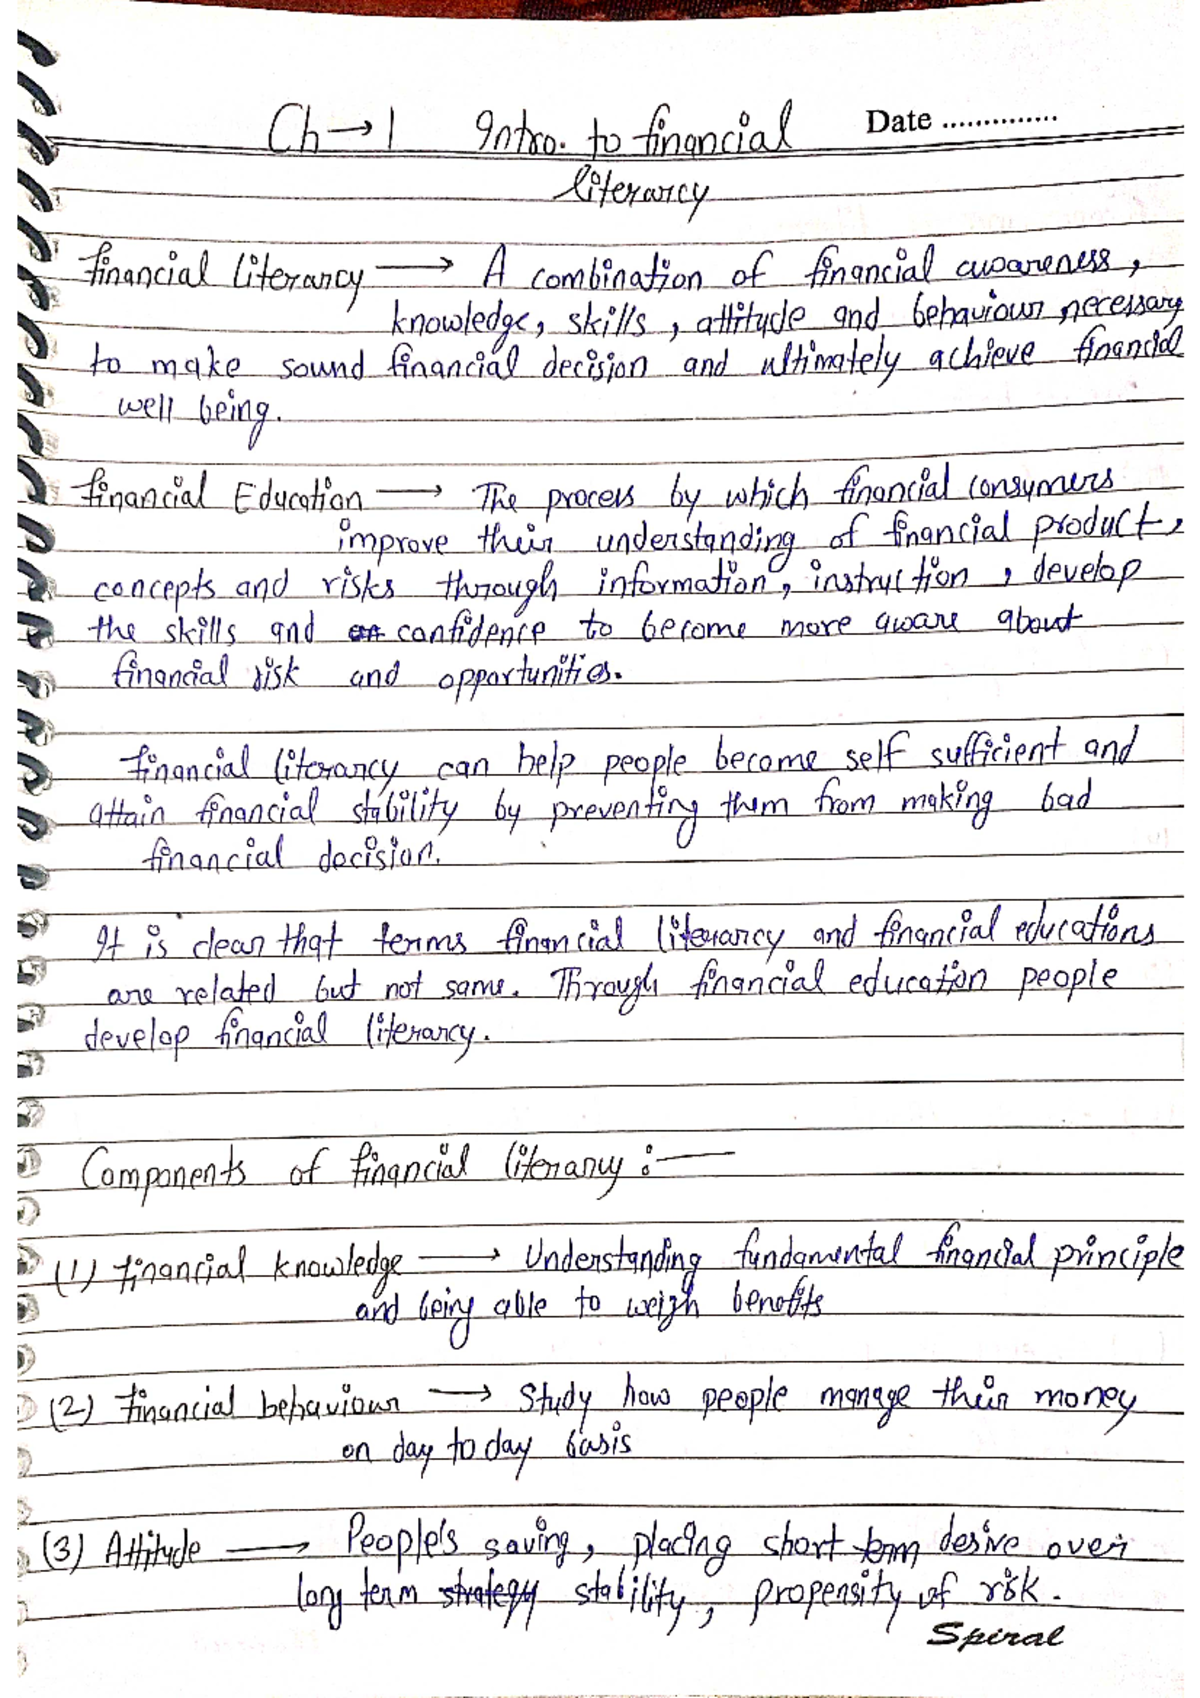 Ch → 1 Intro. to financial Date ..............
literarcy
financial Literarcy → A combination of financial awareness,
knowledge, skills, attitude and behaviour, necessary
to make sound financial decision and ultimately achieve financial
well being.
financial Education → The process by which financial consymers
improve their understanding of financial product,
concepts and risks through information, instruction, develop
the skills and confidence to become more aware about
financial risk and opportunities.
financial literarcy can help people become self sufficient and
attain financial stability by preventing them from making bad
financial decision.
It is clear that terms financial literarcy and financial educations
are related but not same. Through financial education people
develop financial literarcy.
Components of financial literarcy :—
(1) financial knowledge → Understanding fundamental financial principle
and being able to weigh benefits
(2) financial behaviour → Study how people manage their money
on day to day basis
(3) Attitude → People's saving, placing short term desire over
long term strategy stability, propensity of risk.
Spiral